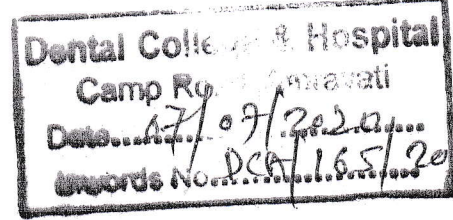 Dental College & Hospital
Camp Road, Amravati
Date......07/07/2020......
Inwords No. DCA/165/20